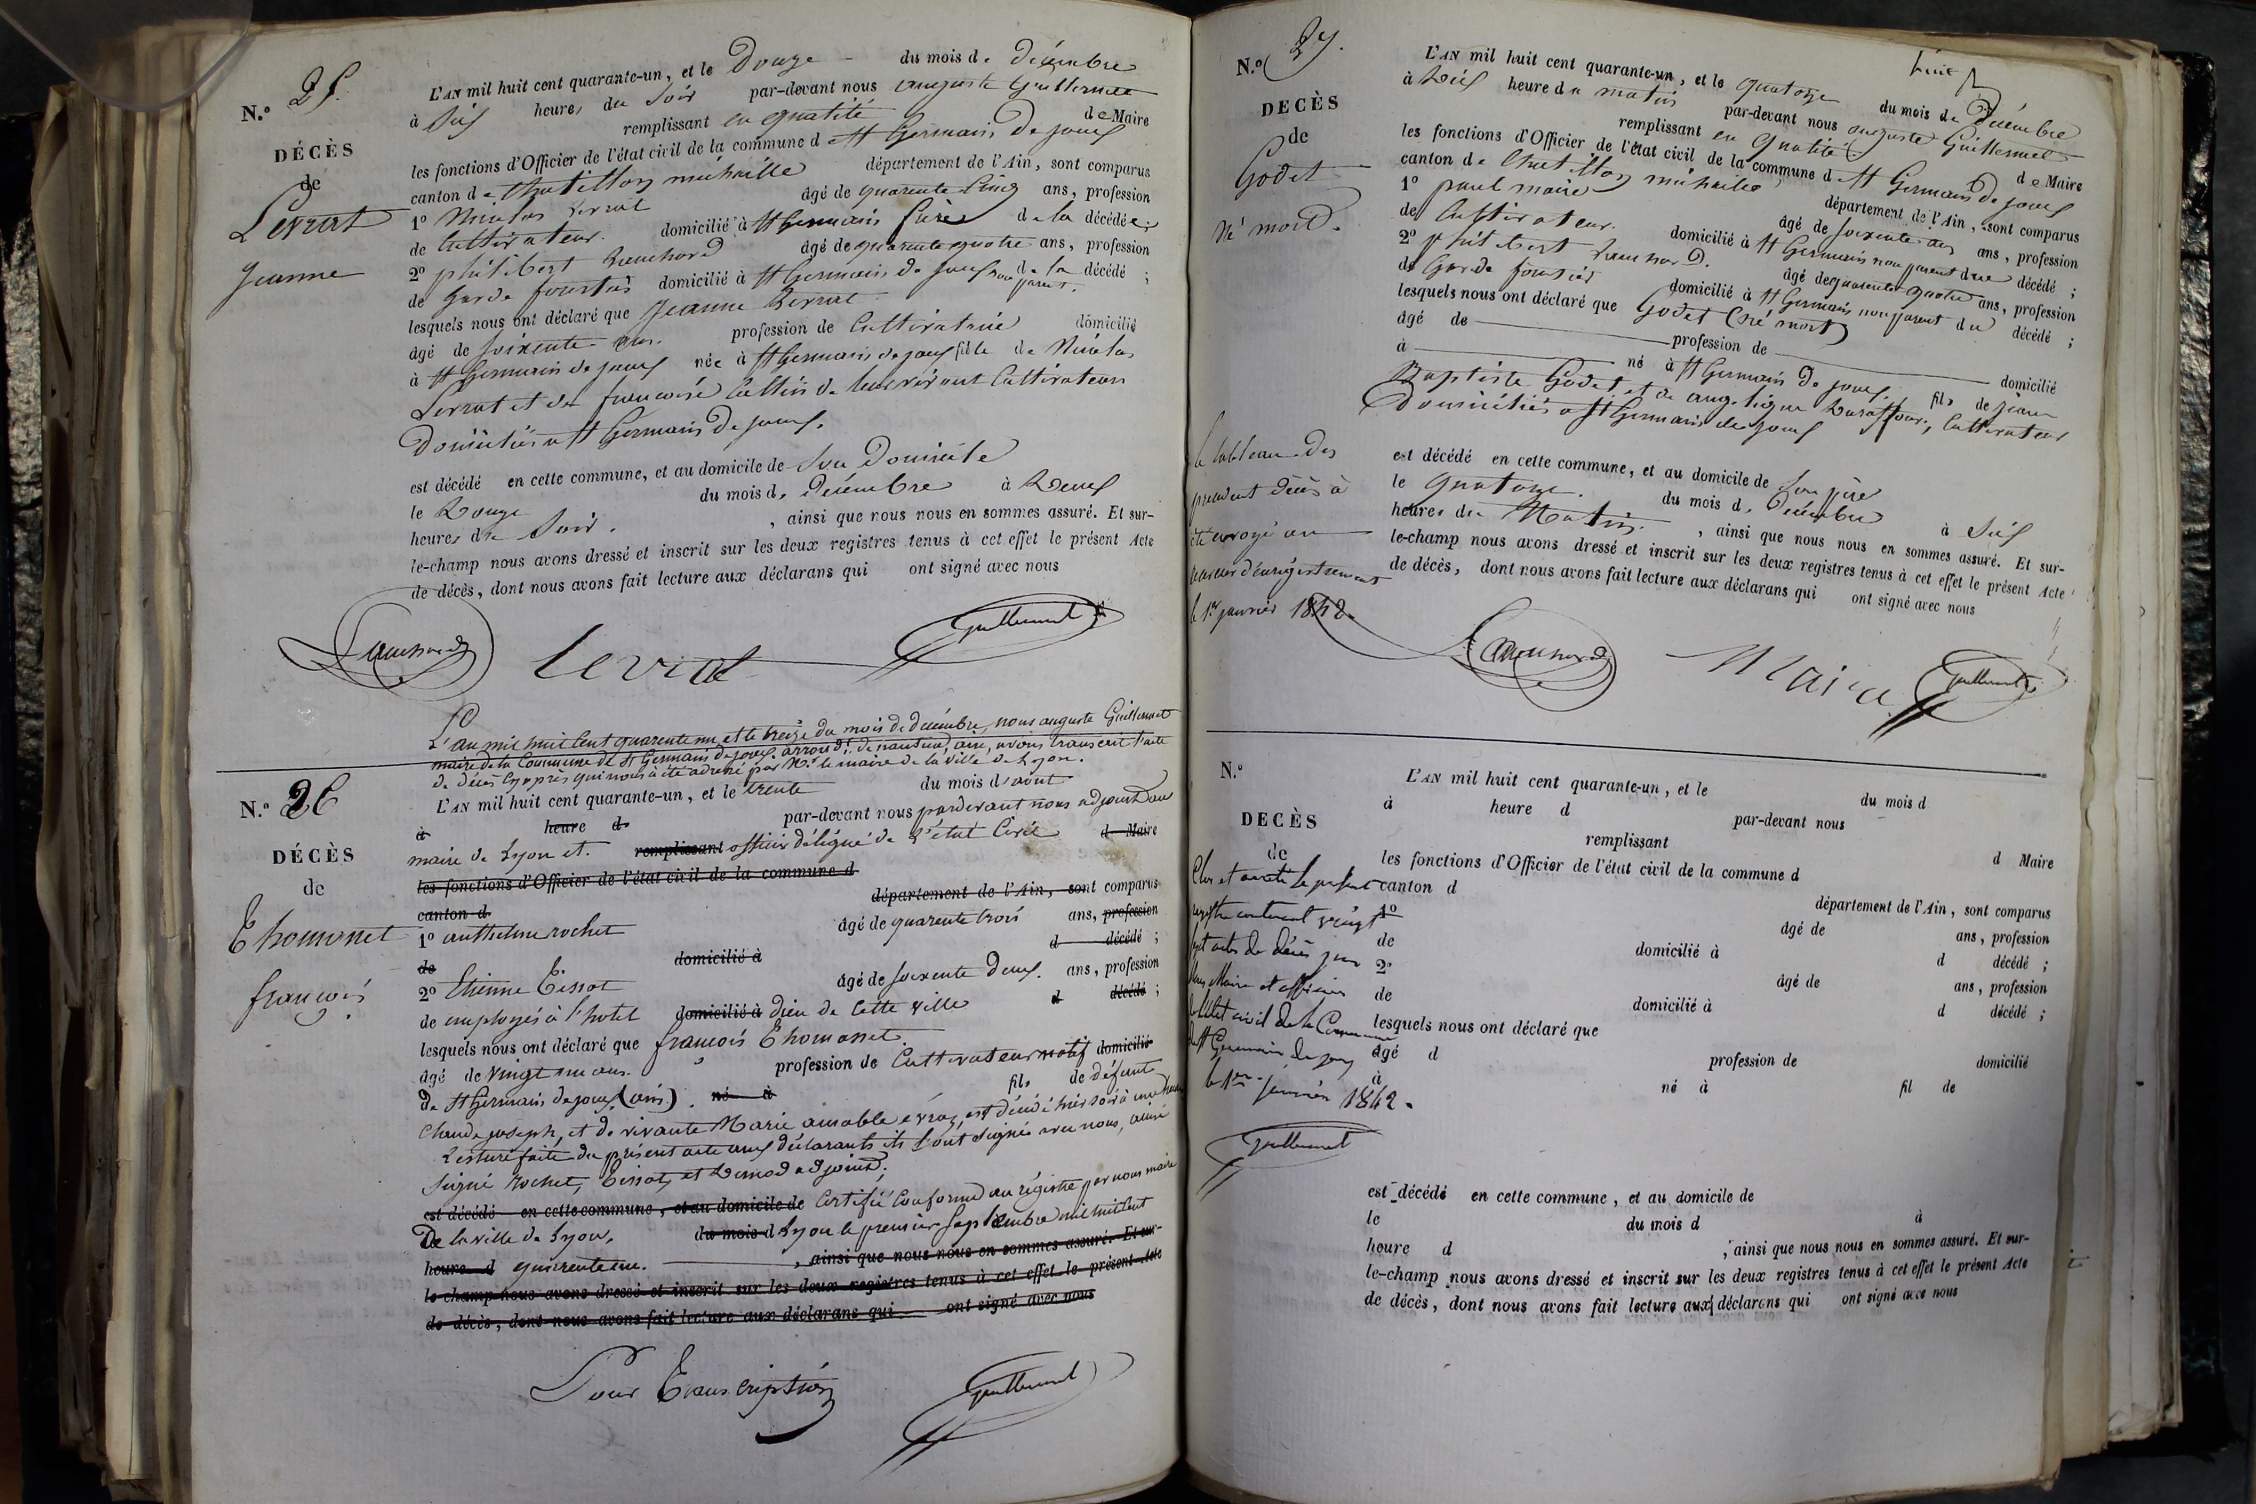 N.o 25.
DÉCÈS
de
Levrat
Jeanne
L'AN mil huit cent quarante-un, et le Douze du mois de décembre
à Six heures du Soir par-devant nous auguste Guillermet
remplissant en qualité de Maire
les fonctions d'Officier de l'état civil de la commune d St Germain De joux
canton de Chatillon michaille département de l'Ain, sont comparus
1o Nicolas Levrat âgé de quarente Cinq ans, profession
de Cultivateur. domicilié à St Germain frère de la décédée;
2o philibert Ranchard âgé de quarente quatre ans, profession
de Garde forestier domicilié à St Germain de joux non parent de la décédé ;
lesquels nous ont déclaré que Jeanne Levrat
âgé de Soixente ans. profession de Cultivatrice domicilié
à St Germain de joux née à St Germain de joux fille de Nicolas
Levrat et de francoise de leur vivant Cultivateurs
Domiciliés a St Germain De joux.
est décédé en cette commune, et au domicile de Son Domicile
le Douze du mois de décembre à Deux
heures du Soir. , ainsi que nous nous en sommes assuré. Et sur-
le-champ nous avons dressé et inscrit sur les deux registres tenus à cet effet le présent Acte
de décès, dont nous avons fait lecture aux déclarans qui ont signé avec nous
levrat Guillermet
L'an mil huit Cent quarente un, et le treize du mois de décembre, nous auguste Guillermet
maire de la Commune de St Germain de joux, arrondt. de nantua, ain, avons transcrit l'acte
de décès Cy après qui nous a été adressé par Mr le maire de la ville de Lyon.
N.o 26
DÉCÈS
de
Thomasset
françois
L'AN mil huit cent quarante-un, et le trente du mois d'août
à heure d par-devant nous pardevant nous adjoint au
maire de Lyon et. remplissant officier délégué de l'état Civil d Maire
les fonctions d'Officier de l'état civil de la commune d
canton d département de l'Ain, sont comparus
1o anthelme rochet âgé de quarente trois ans, profession
de domicilié à d décédé ;
2o Etienne Tissot âgé de soixente Deux. ans, profession
de employés à l'hotel domicilié à Dieu de Cette ville d décédé ;
lesquels nous ont déclaré que françois Thomasset
âgé de vingt un ans. profession de Cultivateur natif domicilié
de St Germain de joux (ain). né à fils de défunt
Claude joseph, et de vivante Marie aimable évraz, est décédé hier soir à une heure
Lecture faite du présent acte aux déclarants ils l'ont signés avec nous, ainsi
Signé rochet, Tissot, et adjoint;
est décédé en cette commune, et au domicile de Certifié Conforme au régistre par nous maire
De la ville de Lyon, du mois d Lyon le premier Septembre mil huit Cent
heure d quarente un. , ainsi que nous nous en sommes assuré. Et sur-
le-champ nous avons dressé et inscrit sur les deux registres tenus à cet effet le présent Acte
de décès, dont nous avons fait lecture aux déclarans qui ont signé avec nous
Pour Transcription Guillermet
N.o 27.
DECÈS
de
Godet
Né mort.
huit
L'AN mil huit cent quarante-un, et le quatorze du mois de Décembre
à Dix heure du matin par-devant nous auguste Guillermet
remplissant en qualité de Maire
les fonctions d'Officier de l'état civil de la commune d St Germain de joux
canton de Chatillon michaille département de l'Ain, sont comparus
1o paul maire âgé de soixente ans, profession
de Cultivateur. domicilié à St Germain non parent du décédé ;
2o philibert Ranchard. âgé de quarente quatre ans, profession
de Garde forestier domicilié à St Germain non parent du décédé ;
lesquels nous ont déclaré que Godet (né mort)
âgé de profession de domicilié
à né à St Germain de joux, fils de jean
Baptiste Godet et de angelique Cultivateurs
Domiciliés a St Germain de joux
est décédé en cette commune, et au domicile de Son père
le quatorze. du mois de Décembre à Six
heures du Matin. , ainsi que nous nous en sommes assuré. Et sur-
le-champ nous avons dressé et inscrit sur les deux registres tenus à cet effet le présent Acte
de décès, dont nous avons fait lecture aux déclarans qui ont signé avec nous
le tableau des
présent décès à
été envoyé au
receveur d'enrégistrement
le 1er janvier 1842.
Maire Guillermet
N.o
DECÈS
de
L'AN mil huit cent quarante-un, et le du mois d
à heure d par-devant nous
remplissant d Maire
les fonctions d'Officier de l'état civil de la commune d
canton d département de l'Ain, sont comparus
1o âgé de ans, profession
de domicilié à d décédé ;
2o âgé de ans, profession
de domicilié à d décédé ;
lesquels nous ont déclaré que
âgé d profession de domicilié
à né à fil de
Clos et arrêté le présent
registre contenant vingt
sept actes de décès par
nous Maire et officier
de l'Etat civil de la Commune
de St Germain de joux
le 1er janvier 1842.
Guillermet
est décédé en cette commune, et au domicile de
le du mois d à
heure d , ainsi que nous nous en sommes assuré. Et sur-
le-champ nous avons dressé et inscrit sur les deux registres tenus à cet effet le présent Acte
de décès, dont nous avons fait lecture aux déclarans qui ont signé avec nous